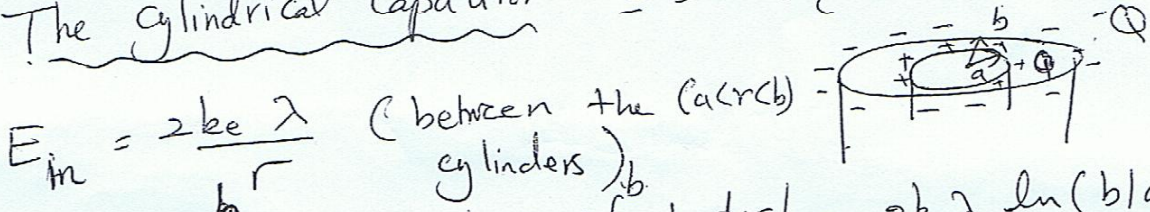 The Cylindrical
b -Q
a + Q
E_in = 2ke λ / r (between the (a<r<b)
cylinders)
b b
ln(b/a